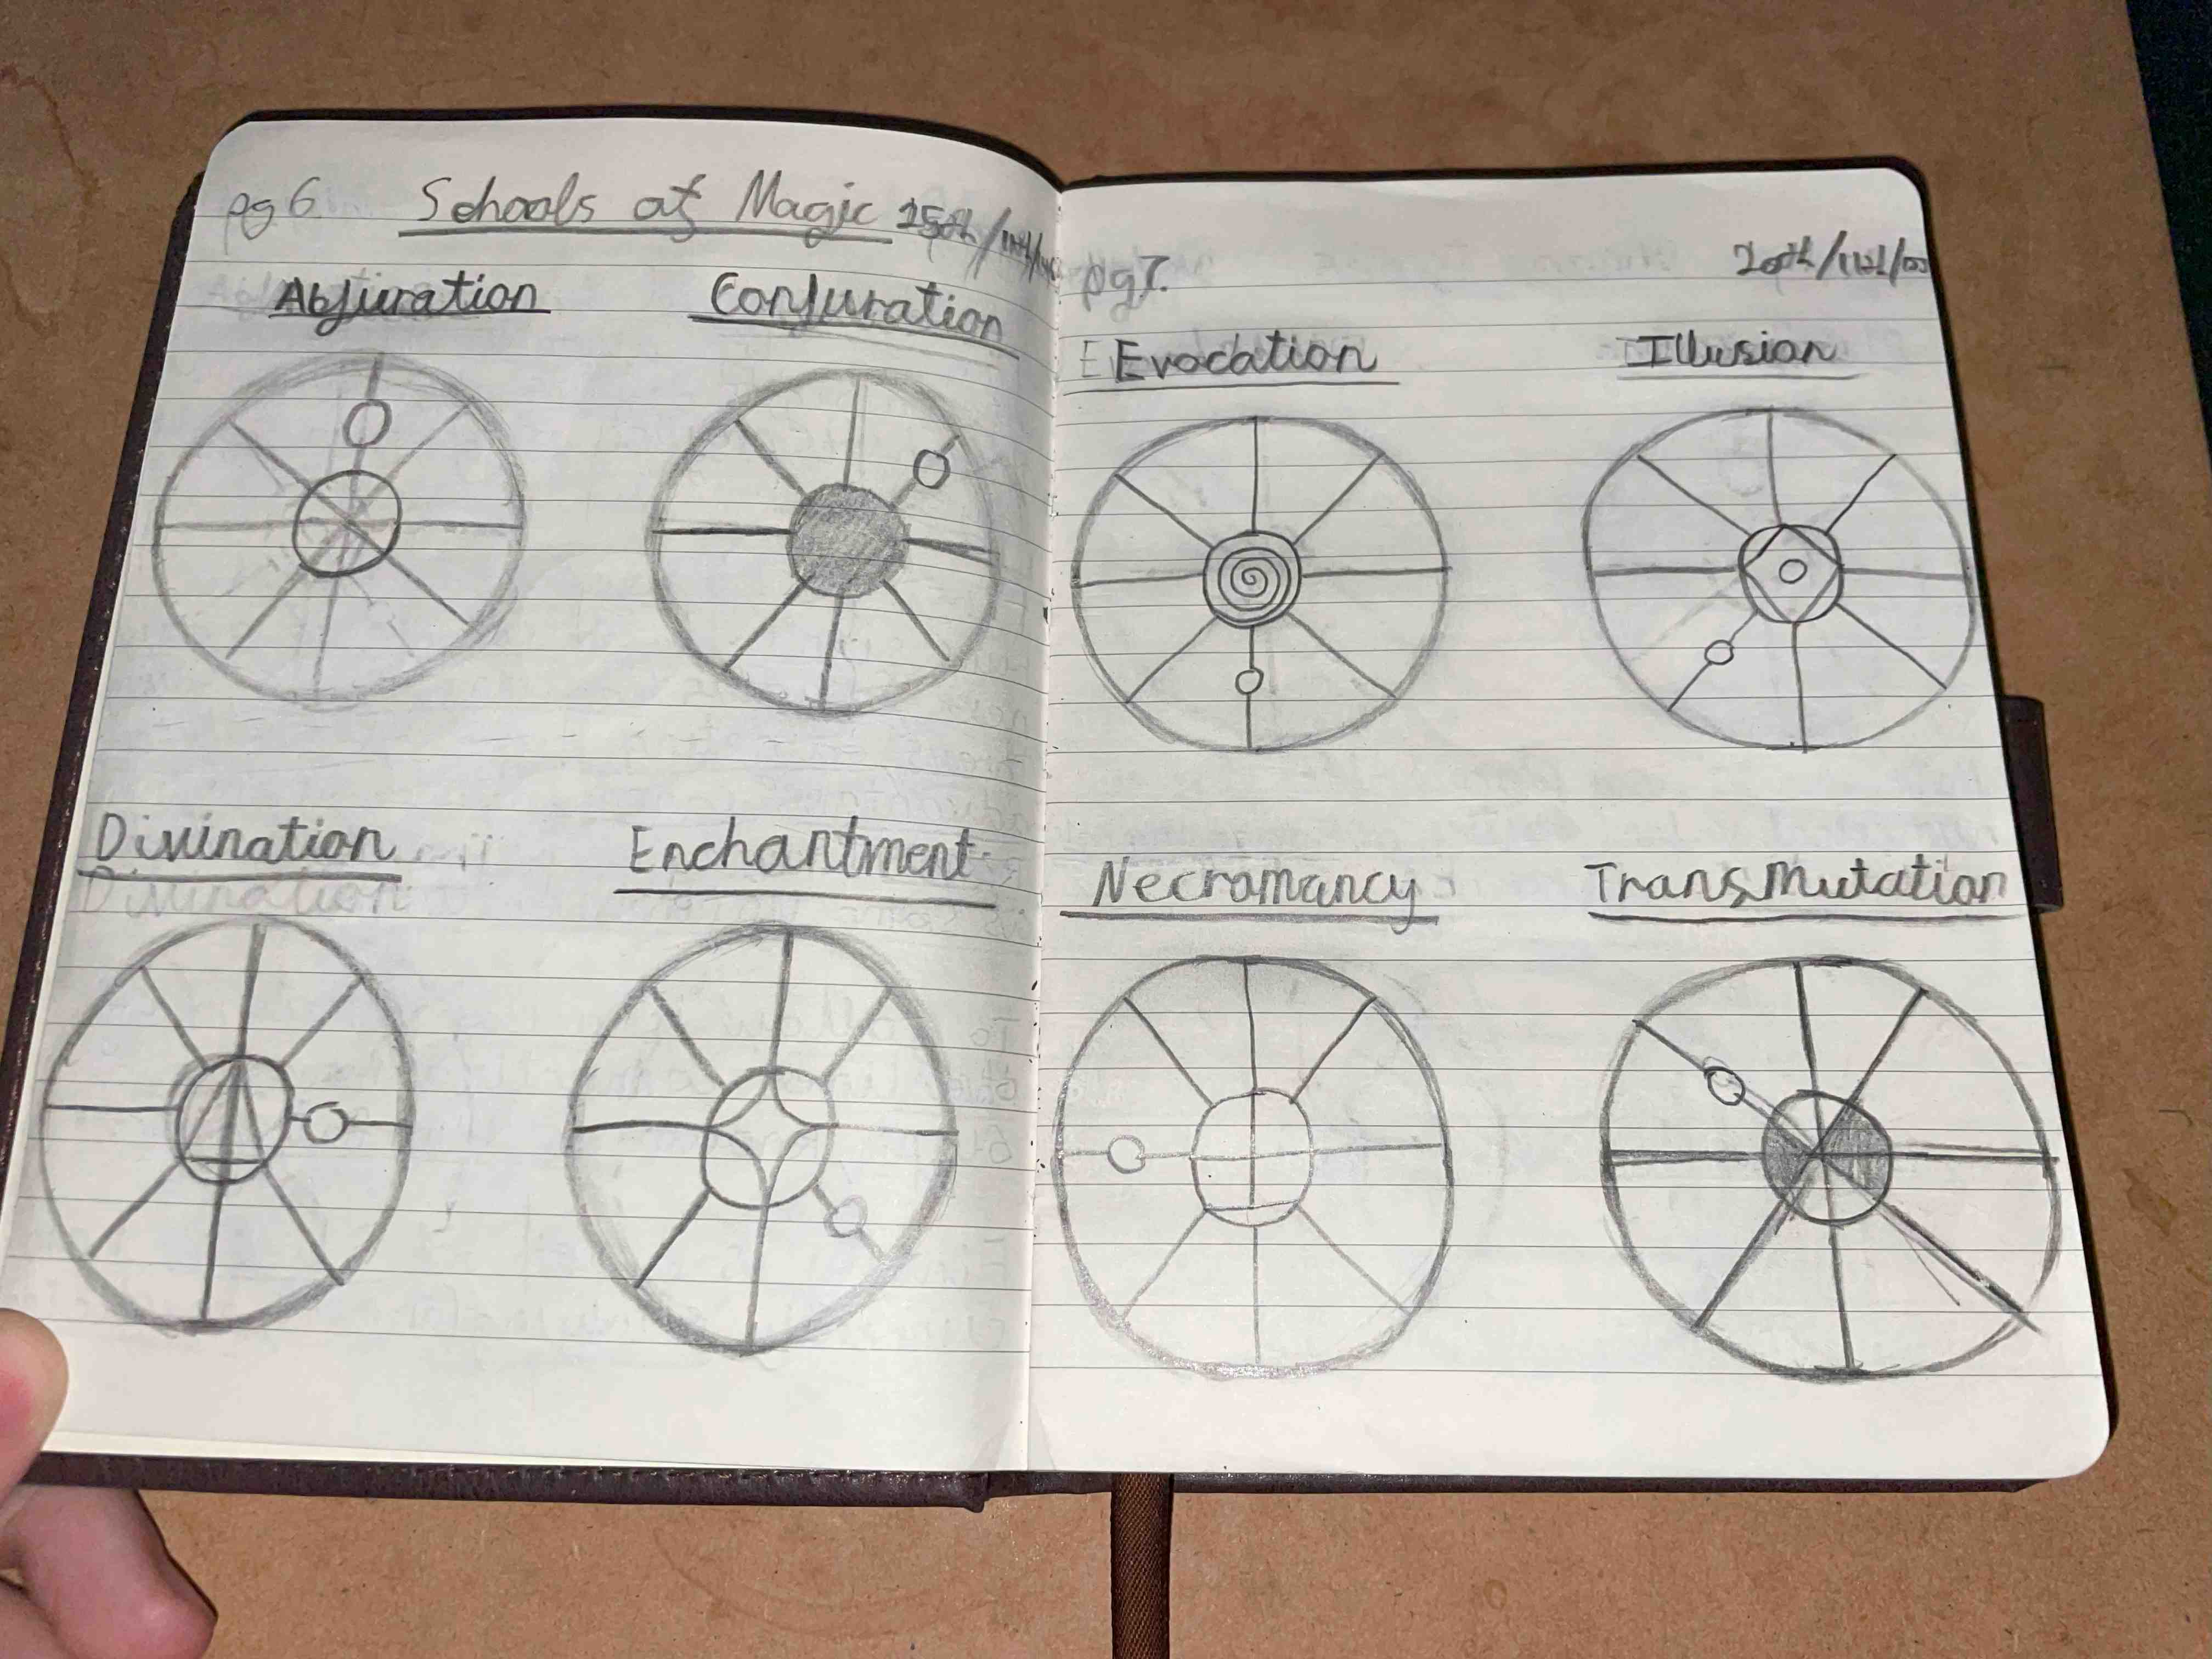 pg 6 Schools of Magic
Abjuration Conjuration
Divination Enchantment
Divination
pg 7.
E Evocation Illusion
Necromancy Transmutation